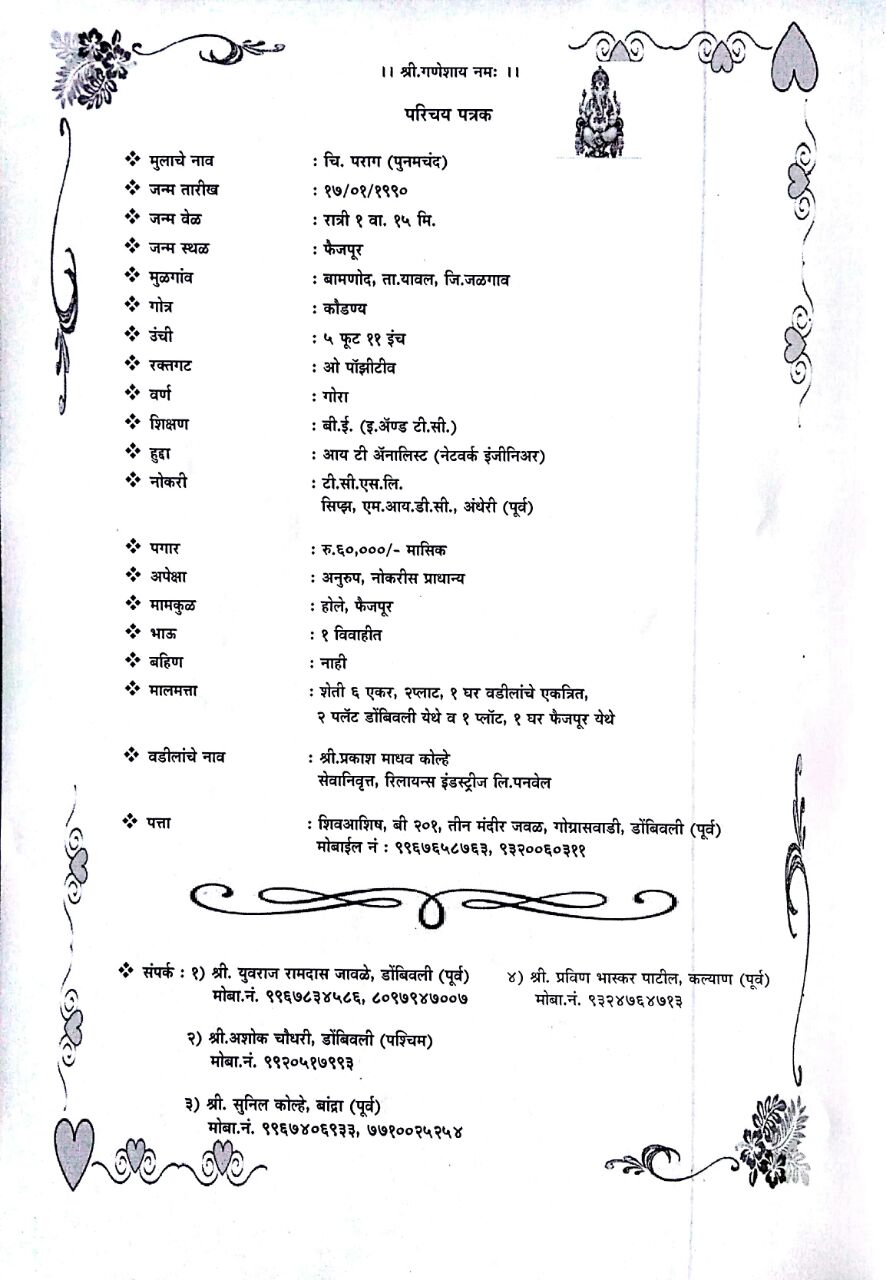 ।। श्री.गणेशाय नमः ।।
परिचय पत्रक
❖ मुलाचे नाव : चि. पराग (पुनमचंद)
❖ जन्म तारीख : १७/०१/१९९०
❖ जन्म वेळ : रात्री १ वा. १५ मि.
❖ जन्म स्थळ : फैजपूर
❖ मुळगांव : बामणोद, ता.यावल, जि.जळगाव
❖ गोत्र : कौडण्य
❖ उंची : ५ फूट ११ इंच
❖ रक्तगट : ओ पॉझीटीव
❖ वर्ण : गोरा
❖ शिक्षण : बी.ई. (इ.ॲण्ड टी.सी.)
❖ हुद्दा : आय टी ॲनालिस्ट (नेटवर्क इंजीनिअर)
❖ नोकरी : टी.सी.एस.लि.
सिप्झ, एम.आय.डी.सी., अंधेरी (पूर्व)
❖ पगार : रु.६०,०००/- मासिक
❖ अपेक्षा : अनुरुप, नोकरीस प्राधान्य
❖ मामकुळ : होले, फैजपूर
❖ भाऊ : १ विवाहीत
❖ बहिण : नाही
❖ मालमत्ता : शेती ६ एकर, २प्लाट, १ घर वडीलांचे एकत्रित,
२ पलॅट डोंबिवली येथे व १ प्लॉट, १ घर फैजपूर येथे
❖ वडीलांचे नाव : श्री.प्रकाश माधव कोल्हे
सेवानिवृत्त, रिलायन्स इंडस्ट्रीज लि.पनवेल
❖ पत्ता : शिवआशिष, बी २०१, तीन मंदीर जवळ, गोग्रासवाडी, डोंबिवली (पूर्व)
मोबाईल नं : ९९६७६५८७६३, ९३२००६०३११
❖ संपर्क : १) श्री. युवराज रामदास जावळे, डोंबिवली (पूर्व)
मोबा.नं. ९९६७८३४५८६, ८०९७९४७००७
२) श्री.अशोक चौधरी, डोंबिवली (पश्चिम)
मोबा.नं. ९९२०५१७९९३
३) श्री. सुनिल कोल्हे, बांद्रा (पूर्व)
मोबा.नं. ९९६७४०६९३३, ७७१००२५२५४
४) श्री. प्रविण भास्कर पाटील, कल्याण (पूर्व)
मोबा.नं. ९३२४७६४७१३